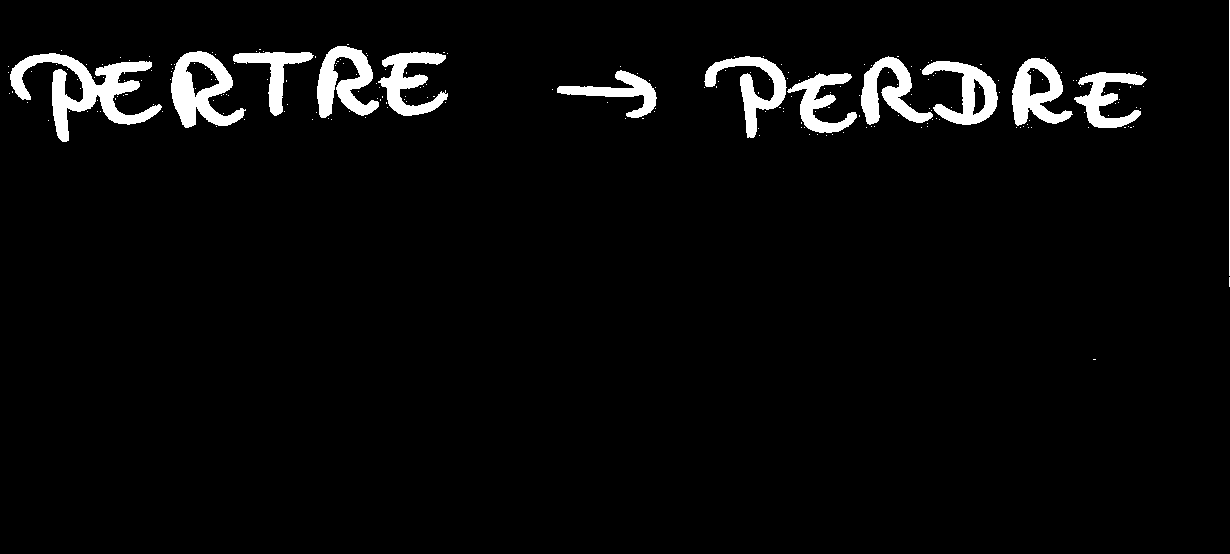 PERTRE → PERDRE